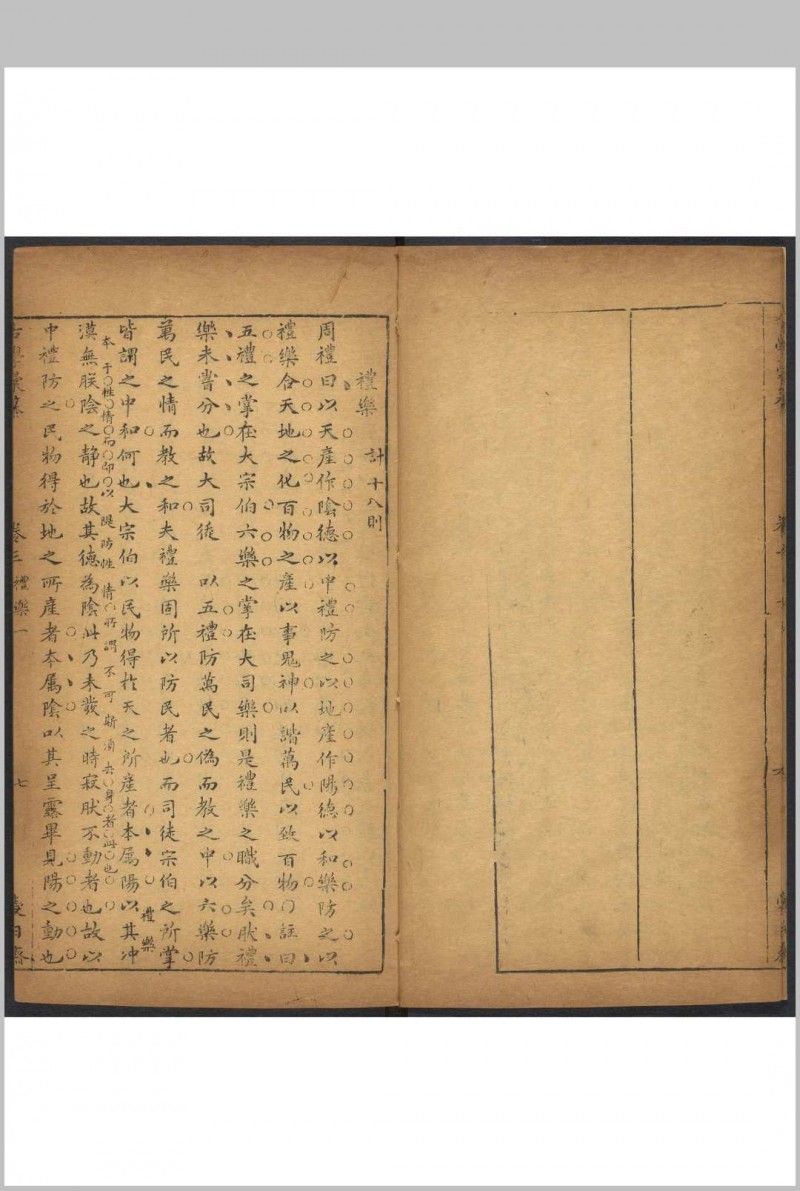 禮樂 計十八則
周禮曰以天產作陰德以中禮防之以地產作陽德以和樂防之以
禮樂合天地之化百物之產以事鬼神以諧萬民以致百物○註曰
五禮之掌在大宗伯六樂之掌在大司樂則是禮樂之職分矣肰禮
樂未嘗分也故大司徒 以五禮防萬民之偽而教之中以六樂防
萬民之情而教之和夫禮樂固所以防民者也而司徒宗伯之所掌
禮樂
皆謂之中和何也大宗伯以民物得於天之所產者本属陽以其冲
本于性情而即以隄防性情所謂不可斯須去身者此也
漠無朕陰之静也故其德為陰此乃未發之時寂肰不動者也故以
中禮防之民物得於地之所產者本属陰以其呈露畢見陽之動也
卷三 禮樂一 七